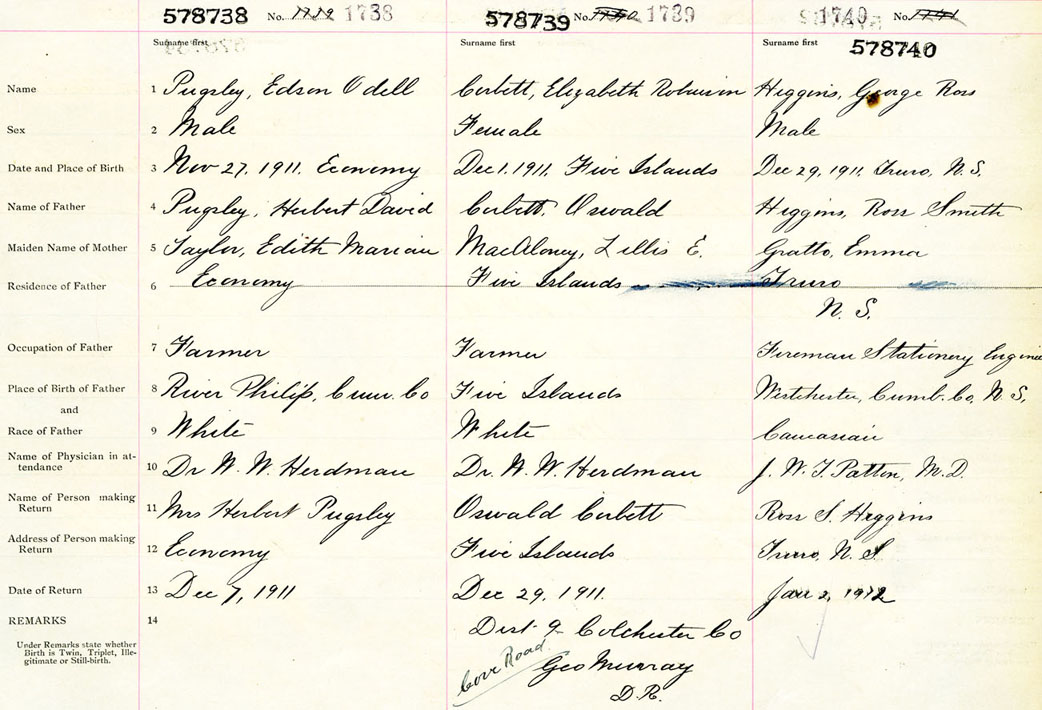 578738 No. 1738
578739 No. 1739
1740 No.
578740
Surname first Surname first Surname first
Name 1 Pugsley, Edson Odell Corbett, Elizabeth Robinson Higgins, George Ross
Sex 2 Male Female Male
Date and Place of Birth 3 Nov 27, 1911. Economy Dec 1. 1911. Five Islands Dec 29, 1911, Truro, N.S.
Name of Father 4 Pugsley, Herbert David Corbett, Oswald Higgins, Ross Smith
Maiden Name of Mother 5 Taylor, Edith Marian MacAloney, Lillis E. Gratto, Emma
Residence of Father 6 Economy Five Islands Truro
N. S.
Occupation of Father 7 Farmer Farmer Fireman Stationery Engine
Place of Birth of Father 8 River Philip, Cum. Co Five Islands Westchester, Cumb. Co, N S,
and
Race of Father 9 White White Caucasian
Name of Physician in at-
tendance 10 Dr W. W. Herdman Dr. W. W. Herdman J. W. T. Patton, M.D.
Name of Person making
Return 11 Mrs Herbert Pugsley Oswald Corbett Ross S. Higgins
Address of Person making
Return 12 Economy Five Islands Truro, N. S
Date of Return 13 Dec 7, 1911 Dec 29, 1911. Jan 2, 1912
REMARKS 14
Dist 9 Colchester Co
Under Remarks state whether
Birth is Twin, Triplet, Ille-
gitimate or Still-birth.
Cove Road
Geo Murray
D.R.